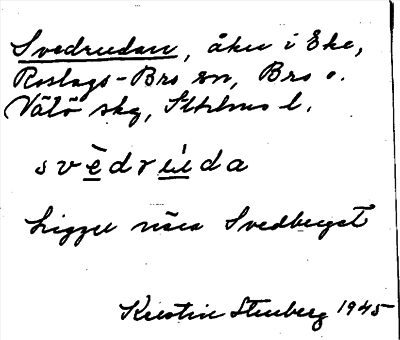 Svedrudan, åker i Eke,
Roslags-Bro sn, Bro o.
Vätö skg, Sthlms l.
svèdrùda
Ligger nära Svedberget
Kerstin Stenberg 1945